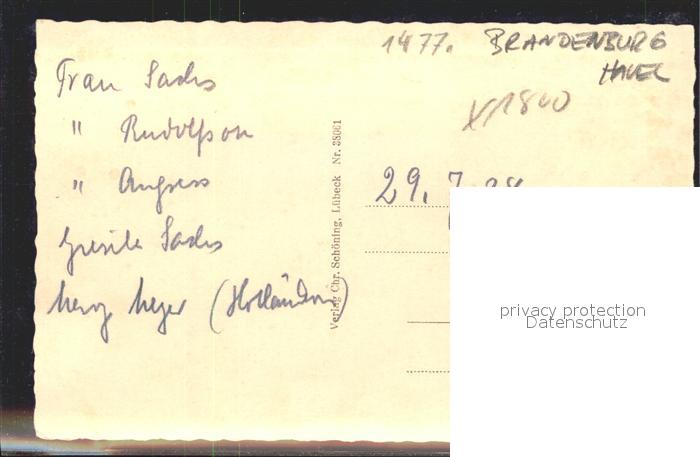 1477. BRANDENBURG
HAVEL
Frau Sachs
" Rudolfson
" Angress
Sachs
Meyer (Holländer)
29. 7.
Verlag Chr. Schöning, Lübeck Nr. 38061
privacy protection
Datenschutz